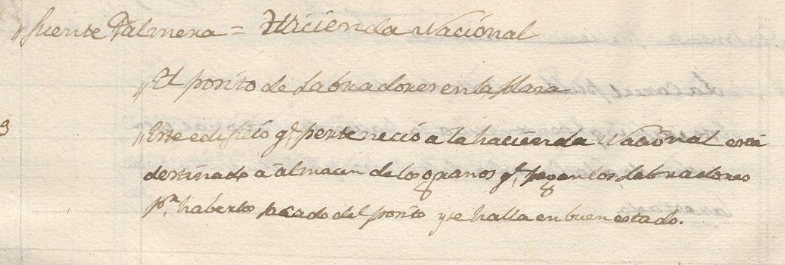 "Fuente Palmera = Hacienda Nacional
"El posito de Labradores en la Plaza
"Este edificio q.e perteneció a la hacienda Nacional está
destinado a almacen de los granos q.e pagan los labradores
p.r haberlo sacado del posito y se halla en buen estado.